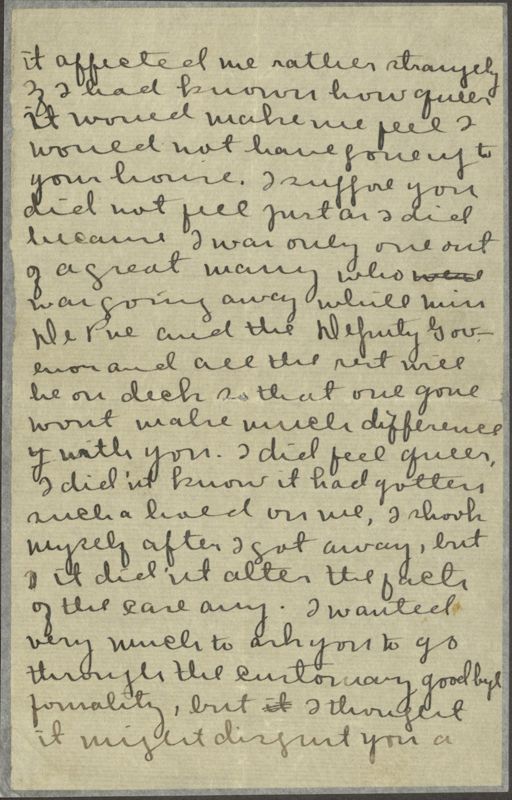 it affected me rather strangely
If I had known how queer
it would make me feel I
would not have gone up to
your house. I suppose you
did not feel just as I did
because I was only one out
of a great many who were
was going away while Miss
De Pue and the Deputy Gov-
enor and all the rest will
be on deck so that one gone
wont make much difference
with you. I did feel queer,
I did'nt know it had gotten
such a hold on me, I shook
myself after I got away, but
it did'nt alter the facts
of the case any. I wanted
very much to ask you to go
through the customary goodbye
formality, but it I thought
it might disgust you a